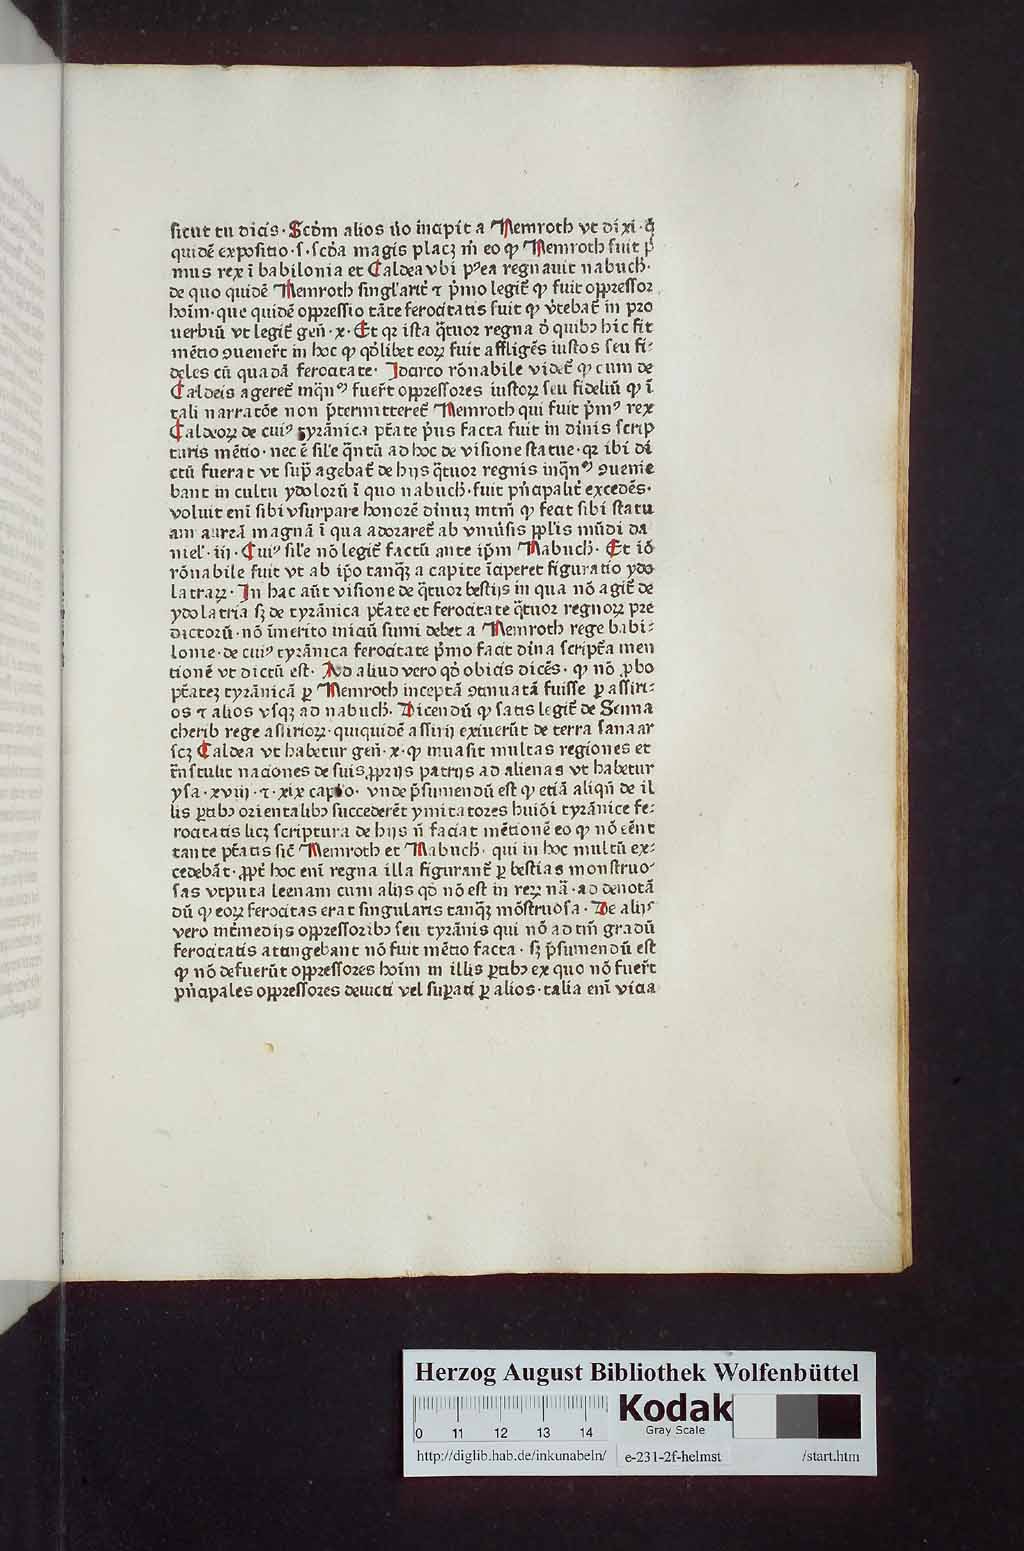 sicut tu dicis· Scd̓m alios ṽo incipit a Nemroth vt dixi· q̃
quidē expositio ·s· scd̓a magis placꝫ m̄ eo ꝙ Nemroth fuit p̓
mus rex ī babilonia et Caldea vbi pꝰea regnauit nabuch̓·
de quo quidē Nemroth singl'arit̃ ⁊ p̓mo legit̃ ꝙ fuit oppressor
hoīm· que quidē oppressio tāte ferocitatis fuit ꝙ v̓tebat̃ in pro
uerbiū vt legit̃ gen̄· x· Et qꝛ ista q̃tuor regna d̓ quibꝫ hic fit
mētio ꝯuener̃t in hoc ꝙ qd̓libet eoꝝ fuit affligēs iustos seu fi-
deles cū quadā ferocitate· Idarco rōnabile videt̃ ꝙ cum de
Caldeis ageret̃ inq̄nꝰ fuer̃t oppressores iustoꝝ seu fideliū ꝙ ī
tali narratōe non p̄termitteret̃ Nemroth qui fuit p̓mꝰ rex
Caldeoꝝ de cuiꝰ tyrānica ptāte p̓us facta fuit in diuis scrip
turis mētio· nec ē sil'e q̄ntū ad hoc de visione statue· qꝛ ibi di
ctū fuerat vt sup̄ agebat̃ de hijs q̃tuor regnis inq̄nꝰ ꝯuenie
bant in cultu ydolorū ī quo nabuch̓· fuit pn̓apalit̃ excedēs·
voluit enī sibi vsurpare honorē diuinū intm̄ ꝙ fecit sibi statu
am aureā magnā ī qua adoraret̃ ab vniuersis ppl'is mūdi da
niel'· iij· Cuiꝰ sil'e nō legit̃ factū ante ip̄m Nabuch̓· Et iō
rōnabile fuit vt ab ip̄o tanqꝫ a capite īciperet figuratio ydo
latraꝝ· In hac aūt visione de q̃tuor bestijs in qua nō agit̃ de
ydolatria sꝫ de tyrānica ptāte et ferocitate q̃tuor regnoꝝ pre
dictorū· nō īmerito iniciū sumi debet a Nemroth rege babi-
lonie· de cuiꝰ tyrānica ferocitate p̓mo facit diuina scriptā men
tionē vt dictū est· Ad aliud vero qd̓ obicis dicēs· ꝙ nō ꝓbo
ptātē tyrānicā ꝑ Nemroth inceptā ꝯtinuatā fuisse ꝑ assiri-
os ⁊ alios vsqꝫ ad nabuch̓· Dicendū ꝙ satis legit̃ de Senna
cherib rege assirioꝝ· quiquidē assirij exiuerūt de terra sanaar
scꝫ Caldea vt habetur gen̄· x· ꝙ inuasit multas regiones et
trāstulit naciones de suis ꝓprijs patrijs ad alienas vt habetur
ysa· xviij· ⁊· xix capto· vnde p̄sumendū est ꝙ etiā aliqn̄ de il
lis ꝑtibꝫ orientalibꝫ succederēt ymitatores huiōi tyrānice fe-
rocitatis licꝫ scriptura de hijs n̄ faciat mētionē eo ꝙ nō eēnt
tante ptātis sic̄ Nemroth et Nabuch̓· qui in hoc multū ex-
cedebāt· ꝓpt̃ hoc enī regna illa figurant̃ ꝑ bestias monstruo-
sas vtputa leenam cum alijs qd̓ nō est in reꝝ nā· ad denotā
dū ꝙ eoꝝ ferocitas erat singularis tanqꝫ mōstruosa· De alijs
vero intmedijs oppressoribꝫ seu tyrānis qui nō ad tm̄ gradū
ferocitatis atingebant nō fuit mētio facta· sꝫ p̄sumendū est
ꝙ nō defuerūt oppressores hoīm in illis ꝑtibꝫ ex quo nō fuer̃t
pn̓apales oppressores deuicti vel suꝑati ꝑ alios· talia enī vicia
Herzog August Bibliothek Wolfenbüttel
0 11 12 13 14
Kodak
Gray Scale
http://diglib.hab.de/inkunabeln/ e-231-2f-helmst /start.htm